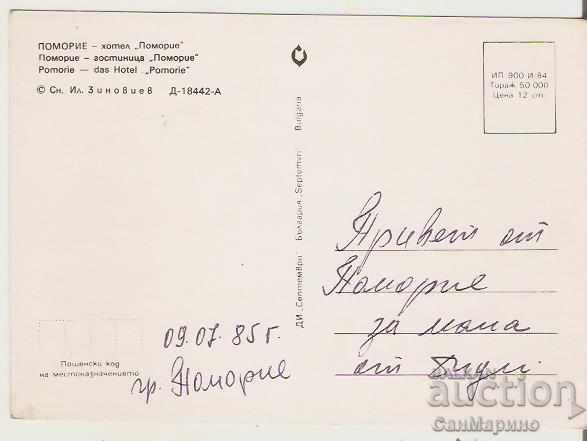 ПОМОРИЕ – хотел „Поморие"
Поморие – гостиница „Поморие"
Pomorie — das Hotel „Pomorie"
© Сн. Ил. Зиновиев Д-18442-А
ИП 900 И-84
Тираж 50 000
Цена 12 ст.
ДИ „Септември" България „Septemvri" Bulgaria
Привет от
Поморие
за мама
от
09.07.85г.
гр. Поморие
Пощенски код
на местоназначението
auction
СанМарино